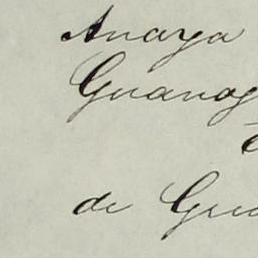 Anaya
Guanag
de Gua